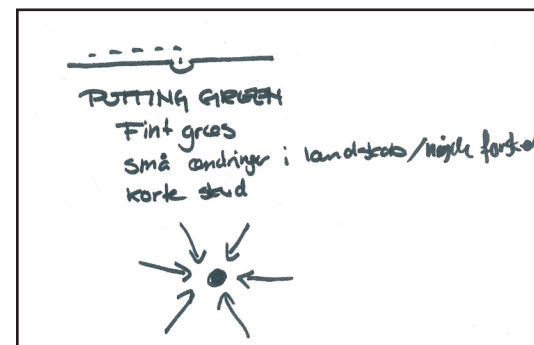 PUTTING GREEN
Fint græs
små ændringer i landskab/højde forskel
korte skud